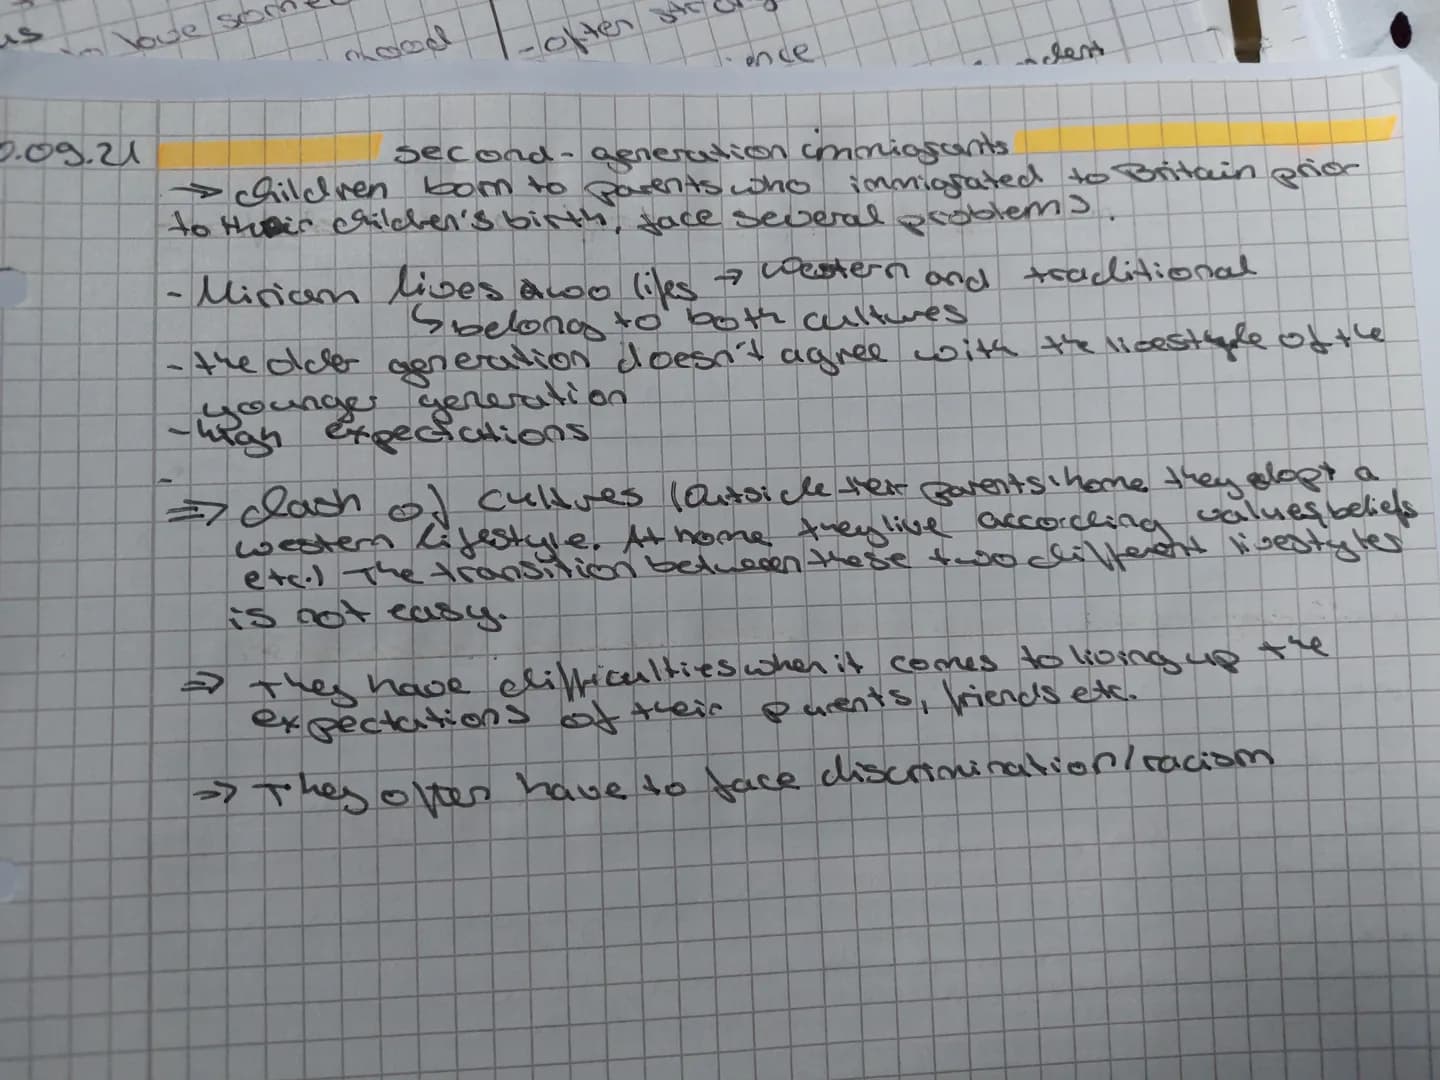 us in love some
mood -often strong
ence dent
0.09.21 second-generation immigrants
→ children born to parents who immigrated to Britain prior
to their children's birth, face several problems.
- Miriam lives two lifes → Western and traditional
↳ belongs to both cultures
- the older generation doesn't agree with the livestyle of the
younger generation
- high expectations
-
⇒ Clash of cultures (Outside their parents' home they adopt a
western lifestyle. At home they live according values, beliefs
etc.) The transition between these two different livestyles
is not easy.
⇒ They have difficulties when it comes to living up the
expectations of their parents, friends etc.
⇒ They often have to face discrimination/racism